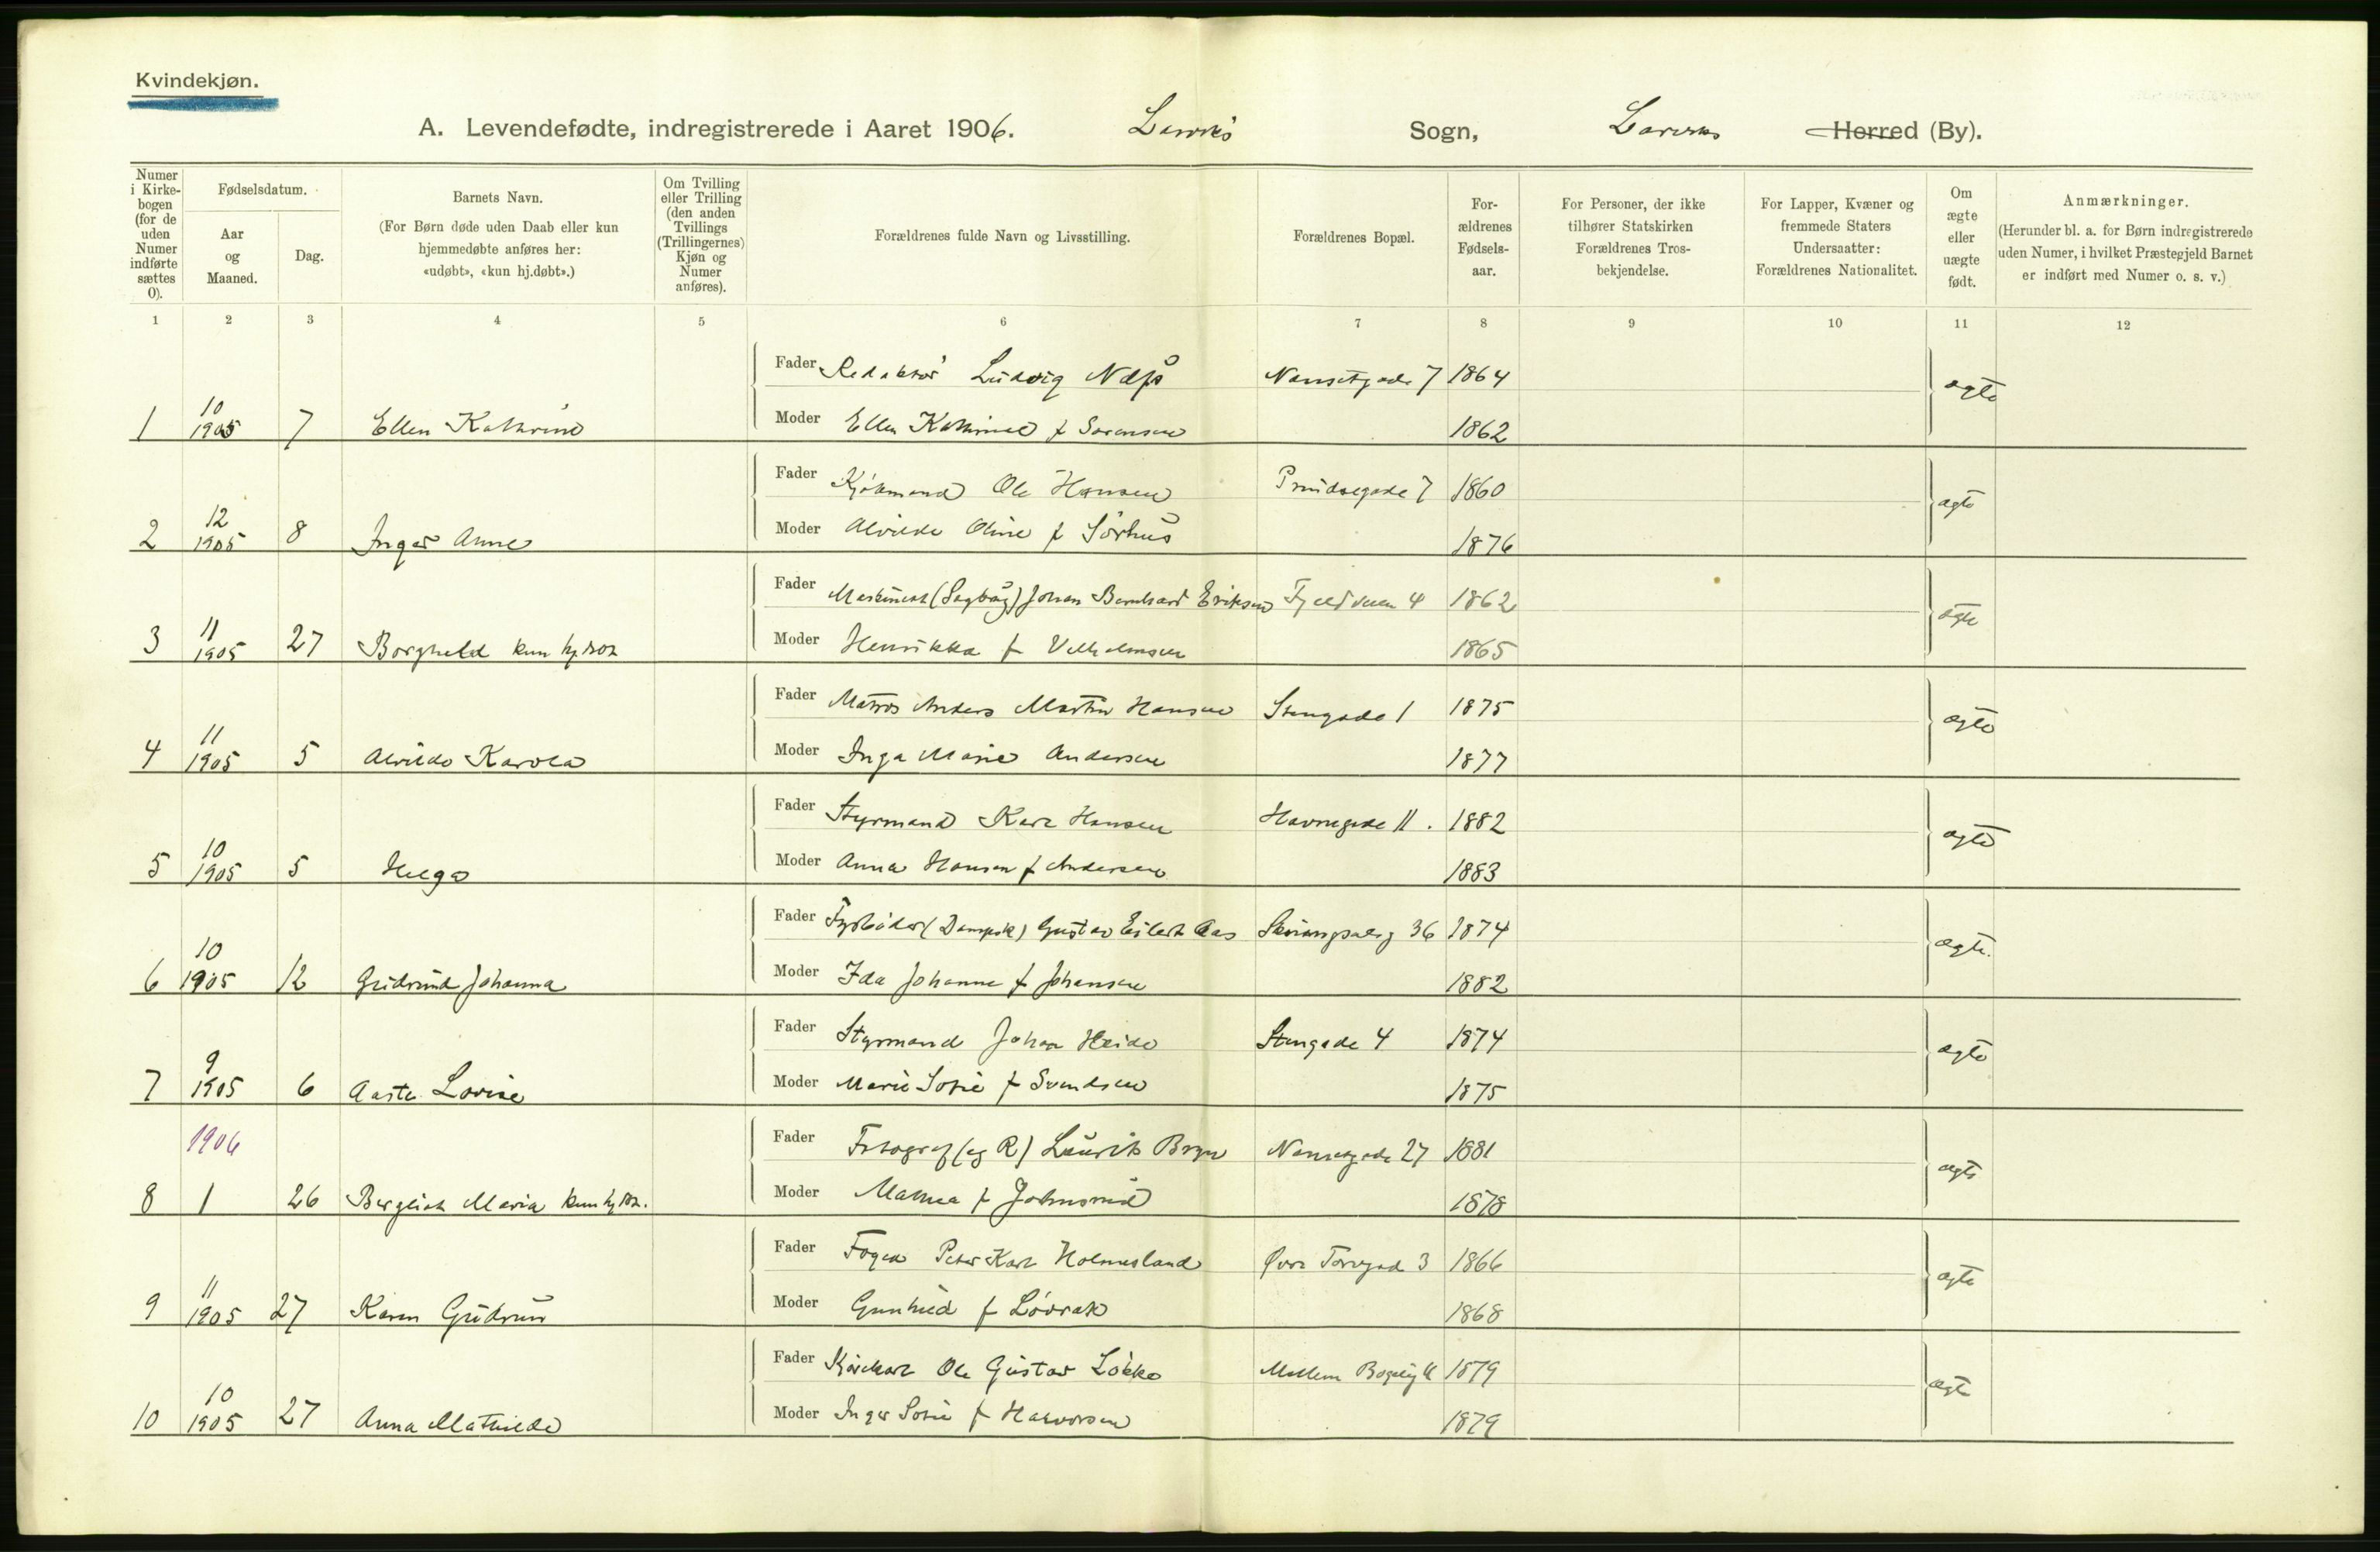 Kvindekjøn.
A. Levendefødte, indregistrerede i Aaret 1906. Larviks Sogn, Larviks Herred (By).
Numer i Kirkebogen (for de uden Numer indførte sættes 0).
Fødselsdatum.
Aar og Maaned.
Dag.
Barnets Navn.
(For Børn døde uden Daab eller kun hjemmedøbte anføres her: «udøbt», «kun hj.døbt».)
Om Tvilling eller Trilling (den anden Tvillings (Trillingernes) Kjøn og Numer anføres).
Forældrenes fulde Navn og Livsstilling.
Forældrenes Bopæl.
Forældrenes Fødselsaar.
For Personer, der ikke tilhører Statskirken Forældrenes Trosbekjendelse.
For Lapper, Kvæner og fremmede Staters Undersaatter: Forældrenes Nationalitet.
Om ægte eller uægte født.
Anmærkninger.
(Herunder bl. a. for Børn indregistrerede uden Numer, i hvilket Præstegjeld Barnet er indført med Numer o. s. v.)
1 2 3 4 5 6 7 8 9 10 11 12
Fader Redaktør Ludvig Næss Nansetgade 7 1864 ægte
1 10 1905 7 Ellen Kathrine Moder Ellen Kathrine f Sørensen 1862
Fader Kjøbmand Ole Hansen Prindsegade 7 1860 ægte
2 12 1905 8 Inger Anne Moder Alvilde Oline f Sørhus 1876
Fader Maskinist (Sagbrug) Johan Bernhard Eriksen Fjeldveien 4 1862 ægte
3 11 1905 27 Borghild kun hj.døbt Moder Henrikka f Vilhelmsen 1865
Fader Matros Anders Martin Hansen Stengade 1 1875 ægte
4 11 1905 5 Alvilde Karola Moder Inga Marie Andersen 1877
Fader Styrmand Karl Hansen Havnegade 11. 1882 ægte
5 10 1905 5 Helga Moder Anna Hansen f Andersen 1883
Fader Fyrbøder (Dampsk) Gustav Eilert Aas 36 1874 ægte.
6 10 1905 12 Gudrund Johanna Moder Ida Johanne f Johansen 1882
Fader Styrmand Johan Heide Stengade 4 1874 ægte
7 9 1905 6 Aasta Lovise Moder Marie Sofie f Svendsen 1875
1906 Fader Fotograf (eg R) Laurits Bryn Nansetgade 27 1881 ægte
8 1 26 Bergliot Maria kun hj døbt. Moder Mathea f Johnsrud 1878
Fader Foged Peter Karl Holmesland Øvre Torvgad 3 1866 ægte
9 11 1905 27 Karen Gudrun Moder Gunhild f Løvrak 1868
Fader Kjørekarl Ole Gustav Løkke Mellem 1879 ægte
10 10 1905 27 Anna Mathilde Moder Inger Sofie f Halvorsen 1879